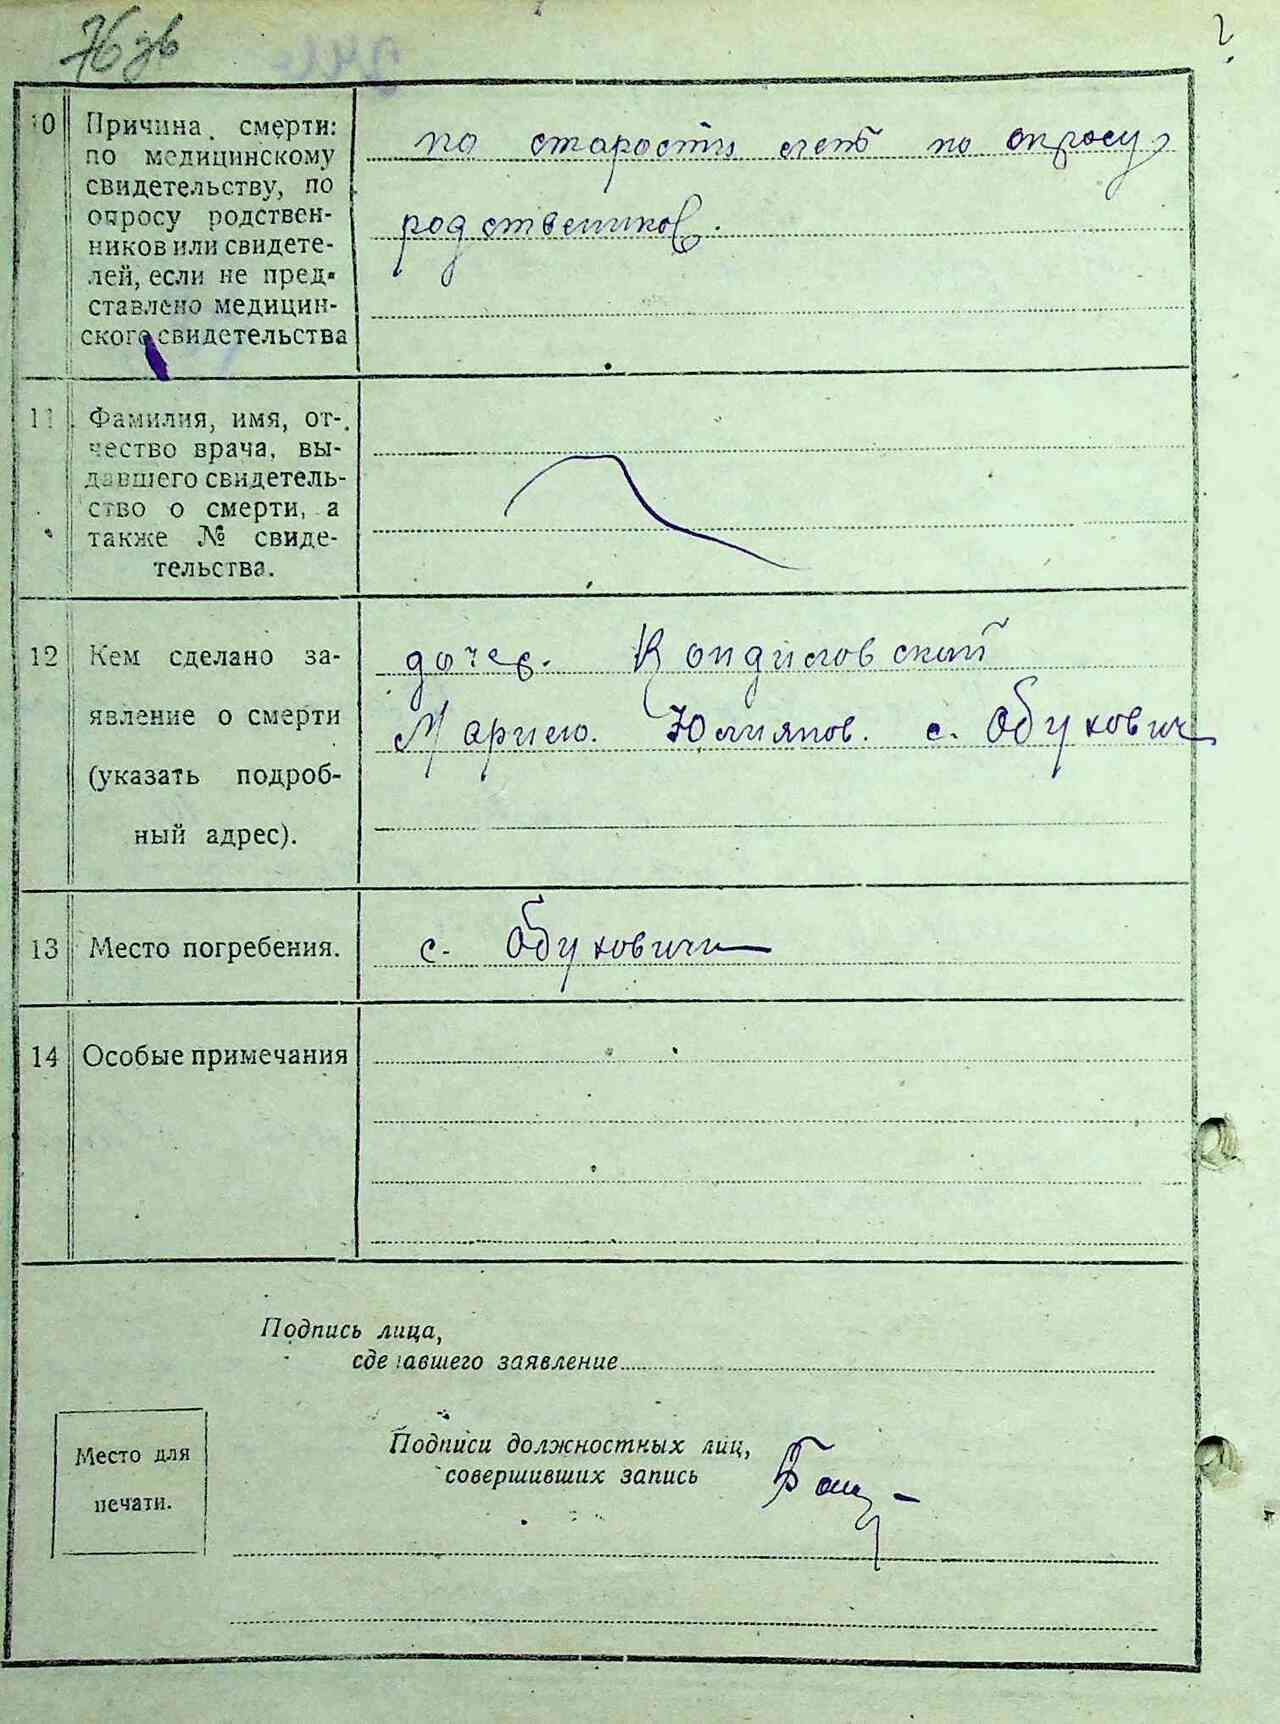 76 зв
10 Причина смерти:
по медицинскому
свидетельству, по
опросу родствен-
ников или свидете-
лей, если не пред-
ставлено медицин-
ского свидетельства
по старости лет по опросу
родствеников.
11 Фамилия, имя, от-
чество врача, вы-
давшего свидетель-
ство о смерти, а
также № свиде-
тельства.
12 Кем сделано за-
явление о смерти
(указать подроб-
ный адрес).
дочев.
Мариею. Юлиянов. с. Обухович
13 Место погребения.
с. Обуховичи
14 Особые примечания
Подпись лица,
сделавшего заявление
Подписи должностных лиц,
совершивших запись
Место для
печати.